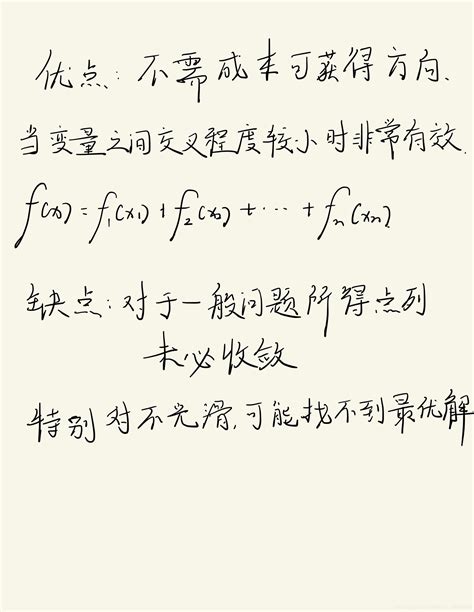 优点：不需成本可获得方向.
当变量之间交叉程度较小时非常有效.
f(x)=f₁(x₁)+f₂(x₂)+⋯+fₙ(xₙ)
缺点：对于一般问题所得点列
未必收敛
特别对不光滑,可能找不到最优解